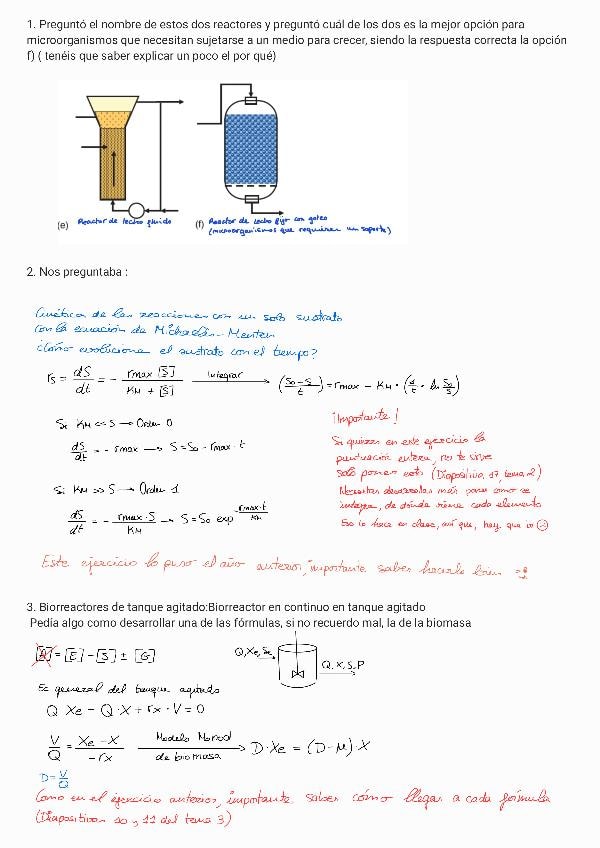 1. Preguntó el nombre de estos dos reactores y preguntó cuál de los dos es la mejor opción para
microorganismos que necesitan sujetarse a un medio para crecer, siendo la respuesta correcta la opción
f) ( tenéis que saber explicar un poco el por qué)
(e) Reactor de lecho fluido
(f) Reactor de lecho fijo con goteo
(microorganismos que requieren un soporte)
2. Nos preguntaba :
Cinética de las reacciones con un solo sustrato
con la ecuación de Michaelis-Menten
¿Cómo evoluciona el sustrato con el tiempo?
rs = dS/dt = - rmax [S] / KM + [S] integrar → (So-S / t) = rmax - KM · (1/t · ln So/S)
Si KM << S → Orden 0
dS/dt = - rmax → S = So - rmax · t
Si KM >> S → Orden 1
dS/dt = - rmax · S / KM → S = So exp -rmax·t / KM
¡Importante!
Si quieres en este ejercicio la
puntuación entera, no te sirve
solo poner esto (Diapositiva 17, tema 2)
Necesitas desarrollar más, poner como se
integra, de dónde viene cada elemento
Eso lo hace en clase, así que, hay que ir
Este ejercicio lo puso el año anterior, importante saber hacerlo bien
3. Biorreactores de tanque agitado:Biorreactor en continuo en tanque agitado
Pedía algo como desarrollar una de las fórmulas, si no recuerdo mal, la de la biomasa
[A] = [E] - [S] ± [G]
Q, Xe, Se
Q, X, S, P
Ec general del tanque agitado
Q Xe - Q · X + rx · V = 0
V/Q = Xe - X / -rx Modelo Monod de biomasa → D · Xe = (D - μ) · X
D = V/Q
Como en el ejercicio anterior, importante saber cómo llegar a cada fórmula
(Diapositivas 10 y 11 del tema 3)